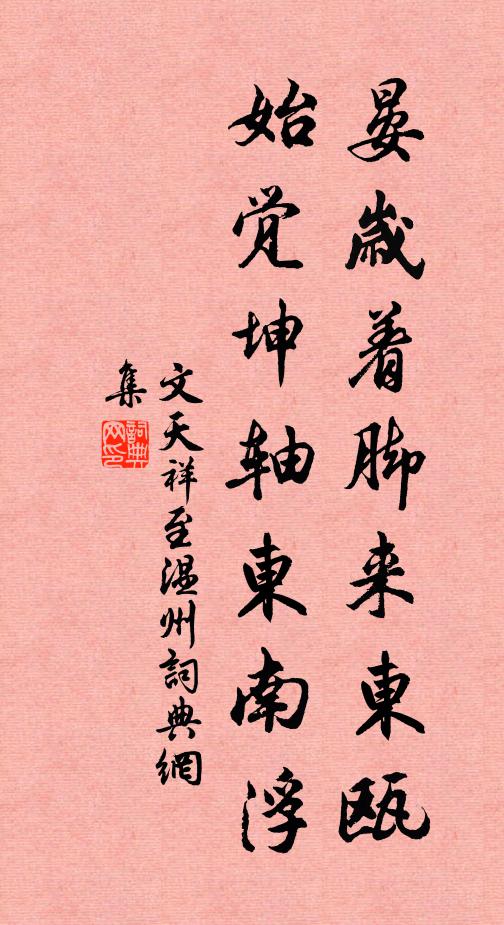 晏歲着脚来東甌
始觉坤轴東南浮
文天祥至温州詞典網
集
詞典网印